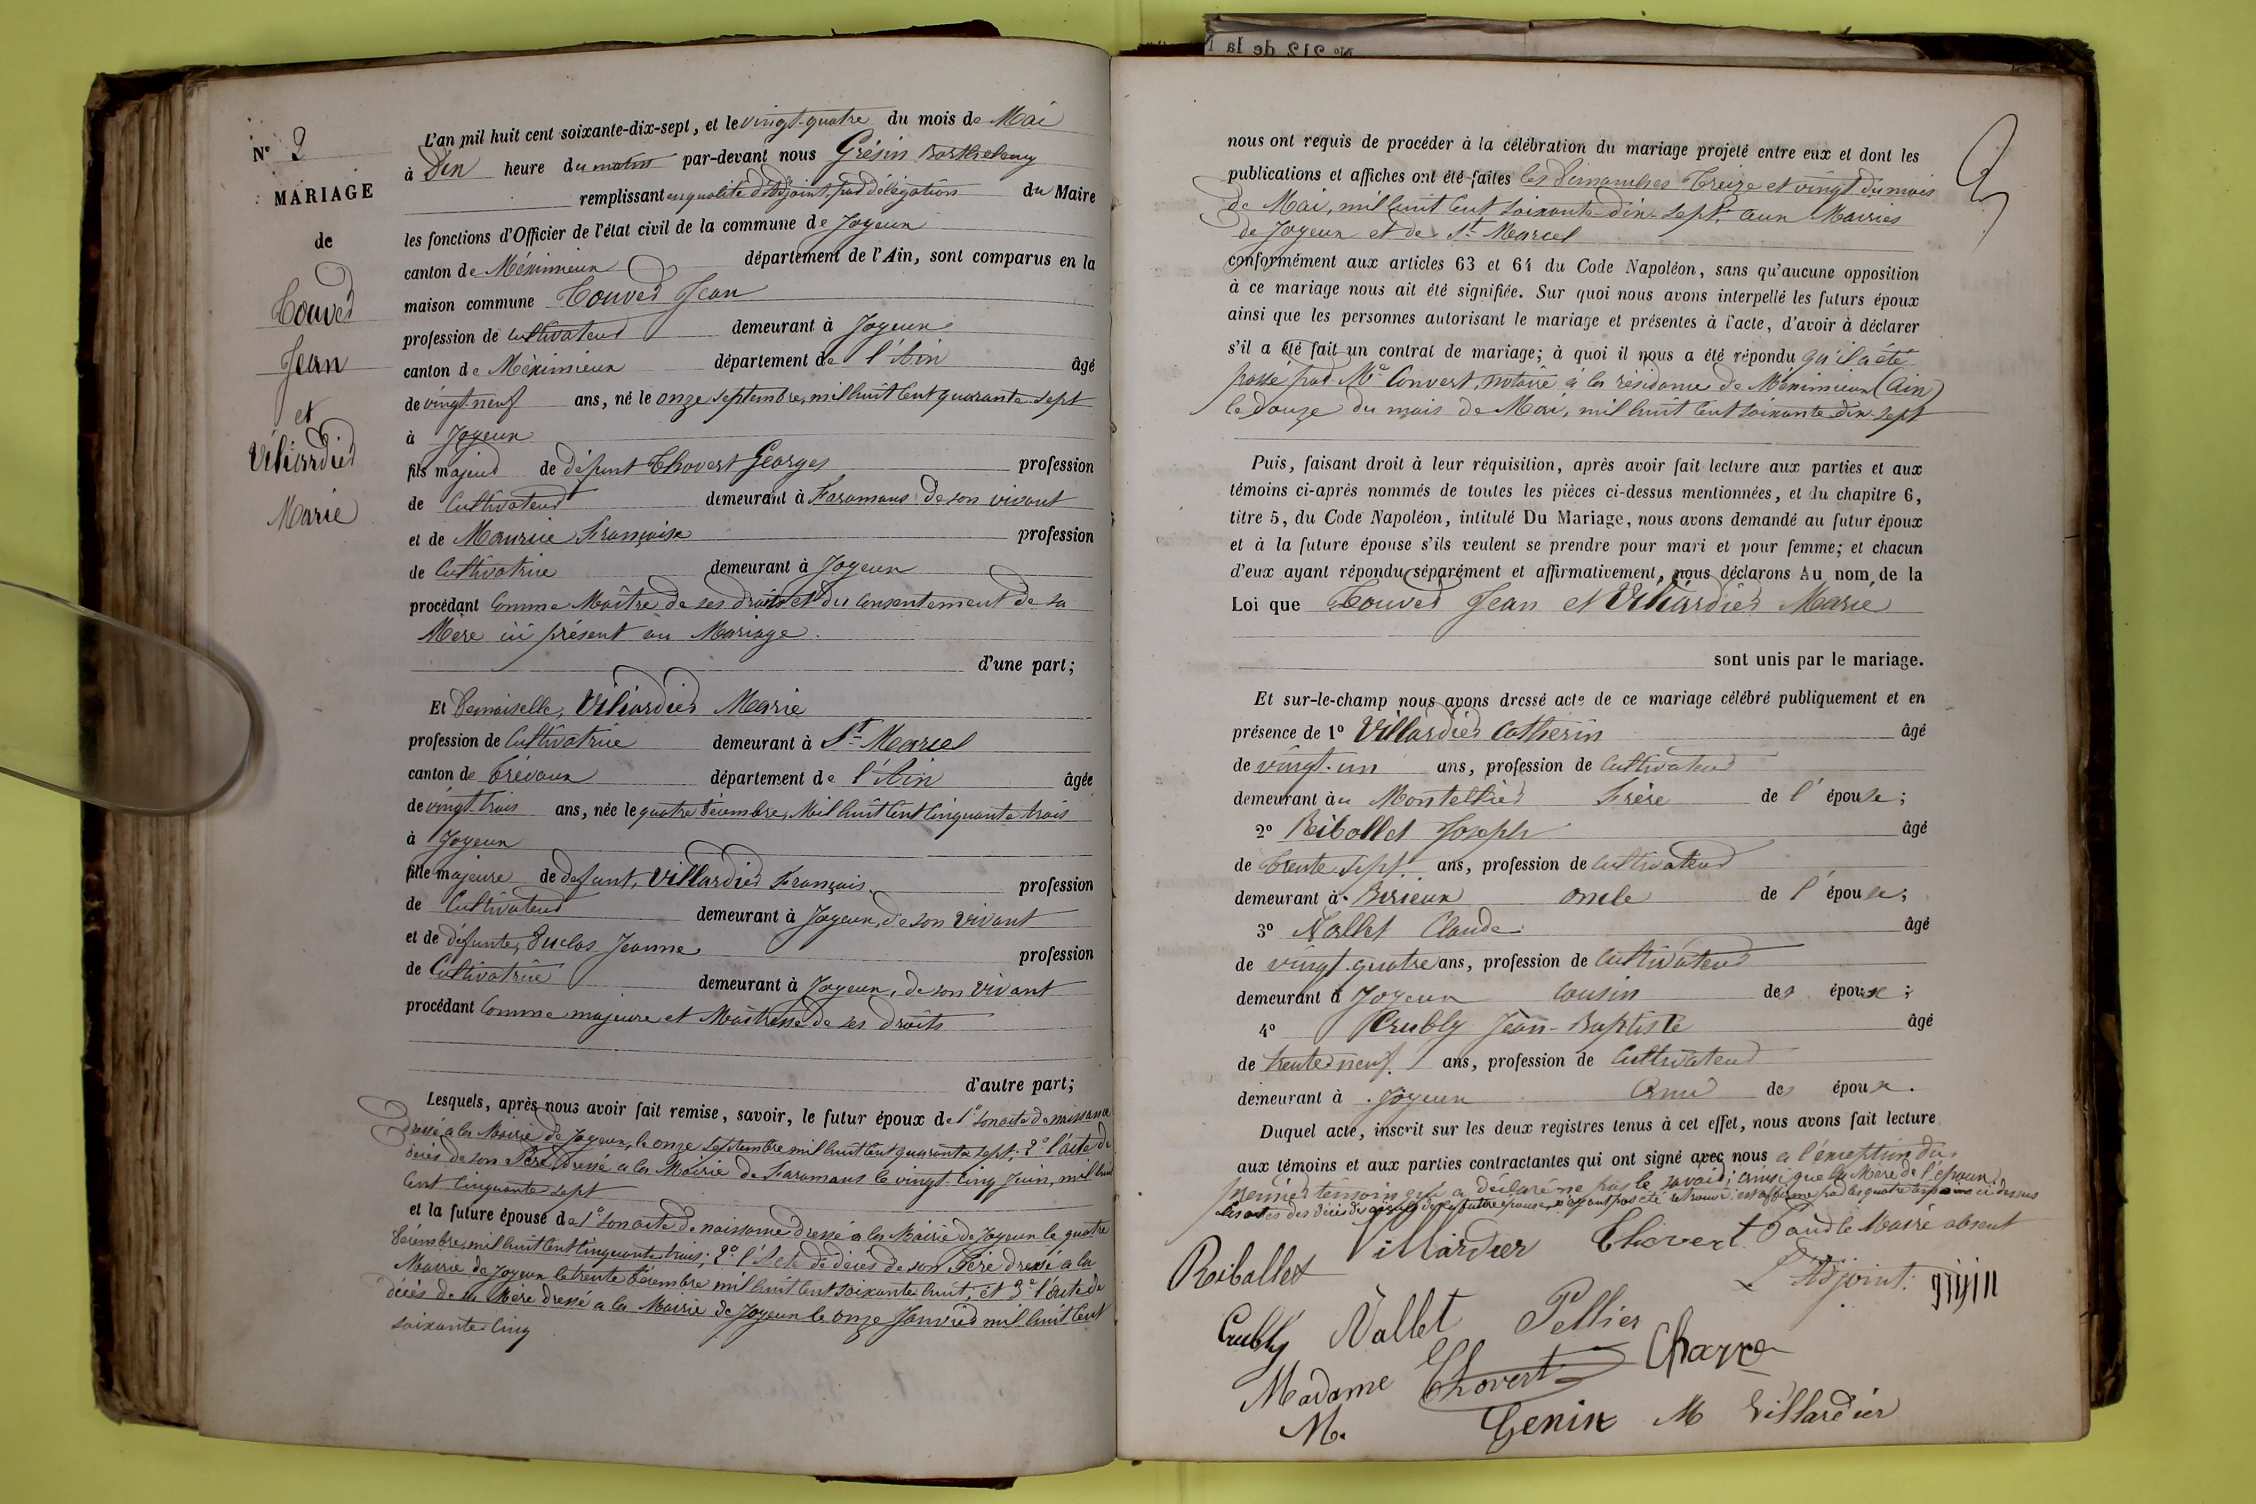 Nº 2
MARIAGE
de
Touved
Jean
et
Villiardier
Marie
L'an mil huit cent soixante-dix-sept, et le vingt-quatre du mois de Mai
à Dix heure du matin par-devant nous Grésin Barthelemy
remplissant en qualité d'adjoint par délégation du Maire
les fonctions d'Officier de l'état civil de la commune de Joyeux
canton de Méximieux département de l'Ain, sont comparus en la
maison commune Touved Jean
profession de cultivateur demeurant à Joyeux
canton de Méximieux département de l'Ain âgé
de vingt-neuf ans, né le onze septembre, mil huit cent quarante sept
à Joyeux
fils majeur de défunt Thovert Georges profession
de Cultivateur demeurant à Faramans de son vivant
et de Maurice Françoise profession
de Cultivatrice demeurant à Joyeux
procédant Comme Maître de ses droits et du consentement de sa
Mère ici présent au Mariage.
d'une part;
Et Demoiselle, Villiardier Marie
profession de Cultivatrice demeurant à St Marcel
canton de Trévoux département de l'Ain âgée
de vingt trois ans, née le quatre décembre, Mil huit cent cinquante trois
à Joyeux
fille majeure de défunt, Villardier François. profession
de Cultivateur demeurant à Joyeux, de son vivant
et de défunte, Duclos Jeanne profession
de Cultivatrice demeurant à Joyeux, de son vivant
procédant Comme majeure et Maîtresse de ses droits
d'autre part;
Lesquels, après nous avoir fait remise, savoir, le futur époux de 1º son acte de naissance
dressé a la Mairie de Joyeux, le onze septembre mil huit cent quarante sept; 2º l'acte de
décès de son Père dressé a la Mairie de Faramans le vingt-cinq Juin, mil huit
cent cinquante sept
et la future épouse de 1º son acte de naissance dressé a la Mairie de Joyeux le quatre
décembre, mil huit cent cinquante trois; 2º l'Acte de décès de son Père dressé a la
Mairie de Joyeux le trente décembre mil huit cent soixante huit; et 3º l'acte de
décès de sa Mère dressé a la Mairie de Joyeux le onze Janvier mil huit cent
soixante cinq
Nº 212 de la
nous ont requis de procéder à la célébration du mariage projeté entre eux et dont les
publications et affiches ont été faites les dimanches treize et vingt du mois
de Mai, mil huit cent soixante-dix-sept, aux Mairies
de Joyeux et de St Marcel
conformément aux articles 63 et 64 du Code Napoléon, sans qu'aucune opposition
à ce mariage nous ait été signifiée. Sur quoi nous avons interpellé les futurs époux
ainsi que les personnes autorisant le mariage et présentes à l'acte, d'avoir à déclarer
s'il a été fait un contrat de mariage; à quoi il nous a été répondu qu'il a été
passé par Me Convert, notaire à la résidence de Méximieux (Ain)
le douze du mois de Mai, mil huit cent soixante dix sept
Puis, faisant droit à leur réquisition, après avoir fait lecture aux parties et aux
témoins ci-après nommés de toutes les pièces ci-dessus mentionnées, et du chapitre 6,
titre 5, du Code Napoléon, intitulé Du Mariage, nous avons demandé au futur époux
et à la future épouse s'ils veulent se prendre pour mari et pour femme; et chacun
d'eux ayant répondu séparément et affirmativement, nous déclarons Au nom de la
Loi que Touved Jean et Villiardier Marie
sont unis par le mariage.
Et sur-le-champ nous avons dressé acte de ce mariage célébré publiquement et en
présence de 1º Villardier Catherin âgé
de vingt-un ans, profession de Cultivateur
demeurant au Montellier Frère de l'épouse;
2º Ribollet Joseph âgé
de trente sept ans, profession de cultivateur
demeurant à Birieux oncle de l'épouse;
3º Nallet Claude âgé
de vingt-quatre ans, profession de Cultivateur
demeurant à Joyeux Cousin des époux;
4º Crubly Jean-Baptiste âgé
de trente-neuf ans, profession de Cultivateur
demeurant à Joyeux Ami des époux.
Duquel acte, inscrit sur les deux registres tenus à cet effet, nous avons fait lecture
aux témoins et aux parties contractantes qui ont signé avec nous a l'éxception du
premier témoin qui a déclaré ne pas le savoir; ainsi que la Mère de l'époux.
les actes des décès des aïeuls de la future épouse, n'ayant pas été retrouvé, est affirmé par les quatre témoins ci dessus
Villardier Thovert Pour le Maire absent
Ribollet L'Adjoint:
Crubly Nallet Pellier
Madame Thovert Charre
M. Genin M Villardier